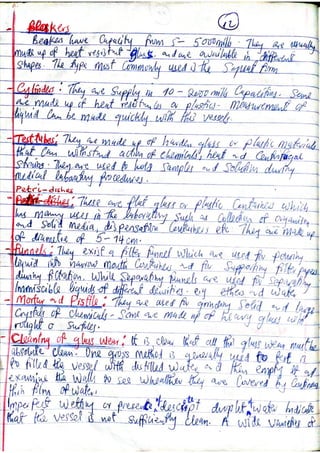 12
- Beakers
Beakers have Capacity from 5 - 5000mills. They are usually
made up of heat resistant glass and are available in different
shapes. The type most Commonly used is the Squat form
- Cylinder: They are Supply in 10 - 2000 mills Capacities. Some
are made up of heat resistances or plastics. Measurement of
liquid Can be made quickly with this vessels.
- Test tubes: They are made up of harden glass or plastic materials
that Can withstand action of chemicals, heat and Centrifugal
strains. They are used to hold Samples and Solution during
medical laboratory procedures.
Petri-dishes
- These are flat glass or plastic Containers which
has many uses in the laboratory such as Collection of organism
and Solid media, dispensation Containers etc. They are made up
of diametre of 5 - 14cm.
- Funnels: They exist a filter funnel which are used for pouring
liquid into narrow mouth Containers and for Supporting filter papers
during filtration. While Separatory funnels are used for Separating
Immiscible liquids of different densities. e.g. ether and water
- Mortar and Pistile: They are used for grinding Solid and large
Crystals of chemicals. Some are made up of heavy glass with
rought Surfaces.
Cleaning of glass wear: It is clean that all this glass wear must be
absolute clean. One gross method is generally used to test
to filled the vessel with distilled water and then empty it and
examine the walls to see wheather they are Covered by Continous
thin film of water.
Imperfect wetting or presence of descript droplet of water Indicate
that the vessel is not sufficiently clean. A wide varieties of